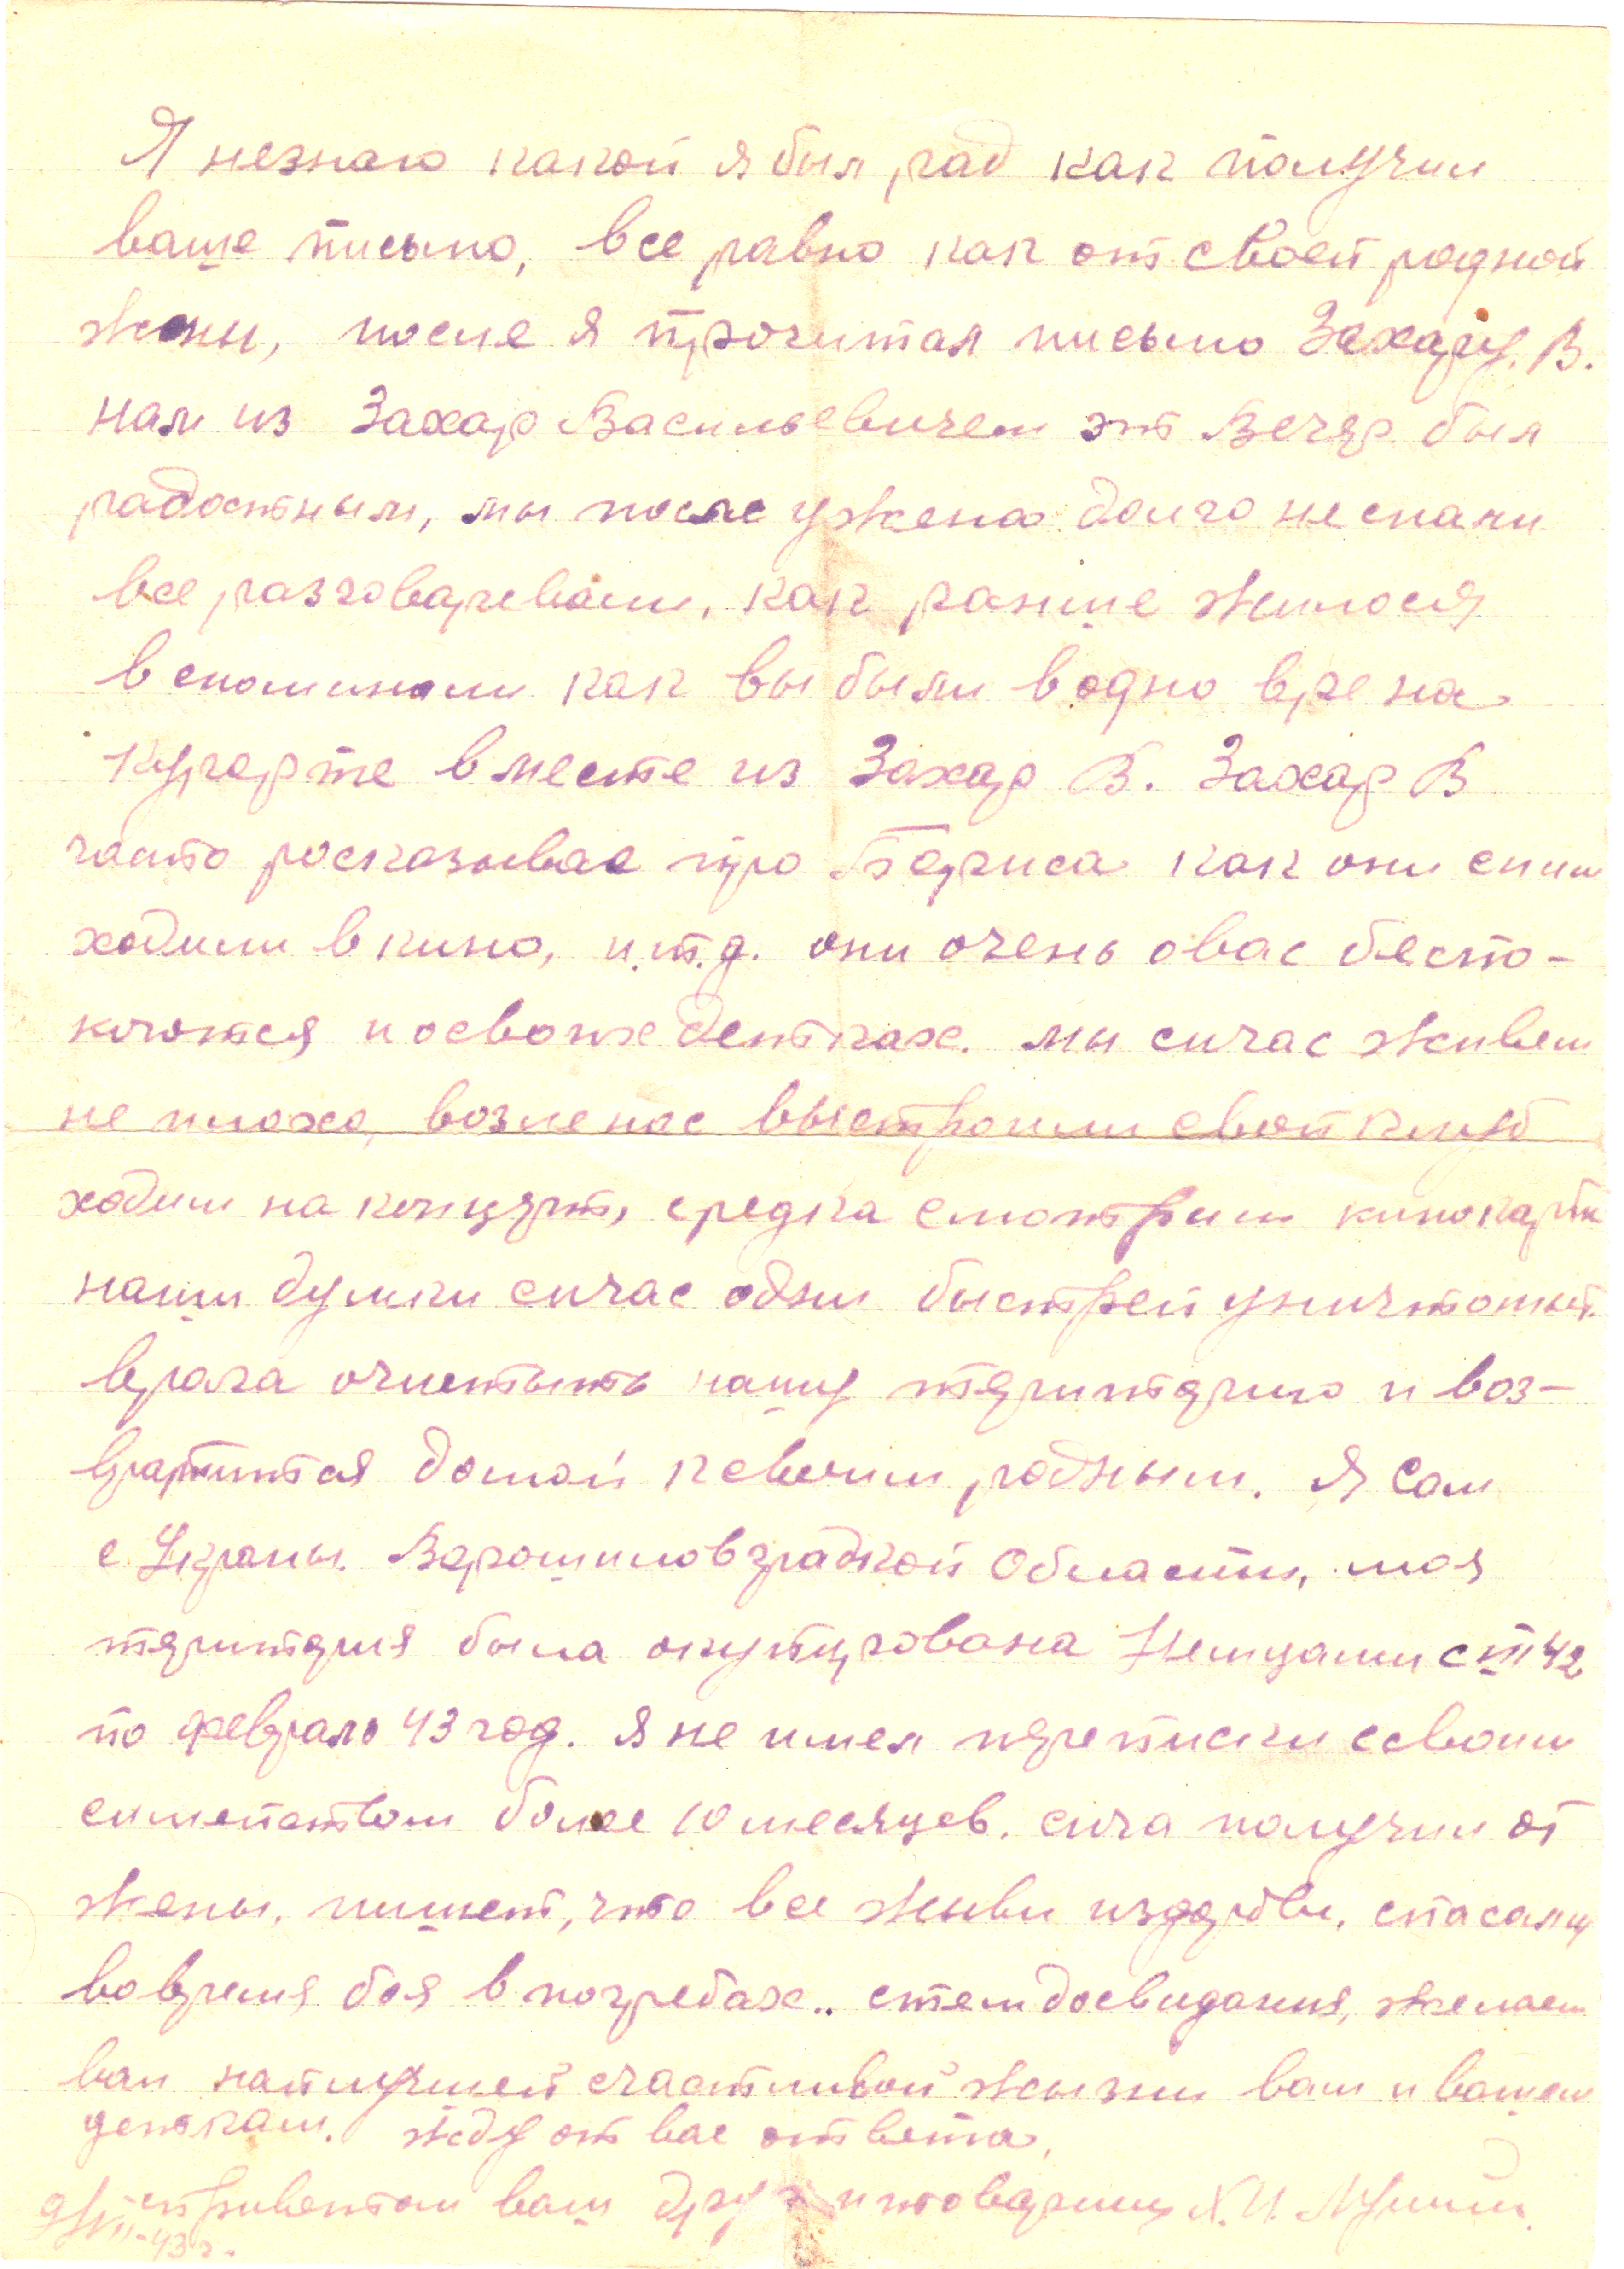 Я незнаю какой я был рад как получил
ваше письмо, все равно как от своей родной
жены, после я прочитал письмо Захару. В.
нам из Захар Васильевичем эт Вечяр был
радостным, мы после ужена долго не спали
все разговаревали, как раньше жилося
вспоминали как вы были водно вре на
курорте вместе из Захар В. Захар В
часто росказывае про Бориса как они сним
ходили в кино, и.т.д. они очень овас беспо-
коются и освоих детках. мы сичас живем
не плохо, возле нас выстроили свой клуб
ходим на концэрт, средка смотрим кинокарти
наши думки сичас одни быстрей уничтожит.
врага очистыть нашу тэриторию и воз-
вратится домой ксвоим родным. Я Сам
с Украны. Ворошиловградкой Области, моя
тэритэрия была окупирована Немцами с VII 42
по февраль 43 год. я не имел пэреписки ссвоим
симейством более 10 месяцев. сича получил от
жены. пишет, что все живи издорови. спасали
вовремя боя в погребах.. стем досвидания, желаем
вам найлучшей счастливой жызни вам и вашем
деткам. жду от вас ответа,
сприветом ваш друг и товарищ Х.И.
9/VII-43 г.